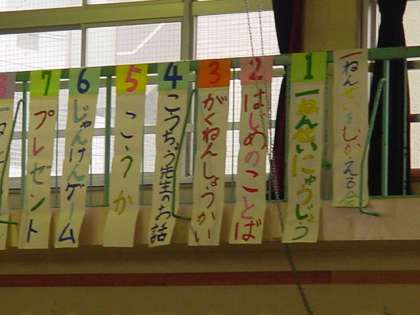 一ねんせいをむかえる会
1 一ねんせいにゅうじょう
2 はじめのことば
3 がくねんしょうかい
4 こうちょう先生のお話
5 こうか
6 じゃんけんゲーム
7 プレゼント
8